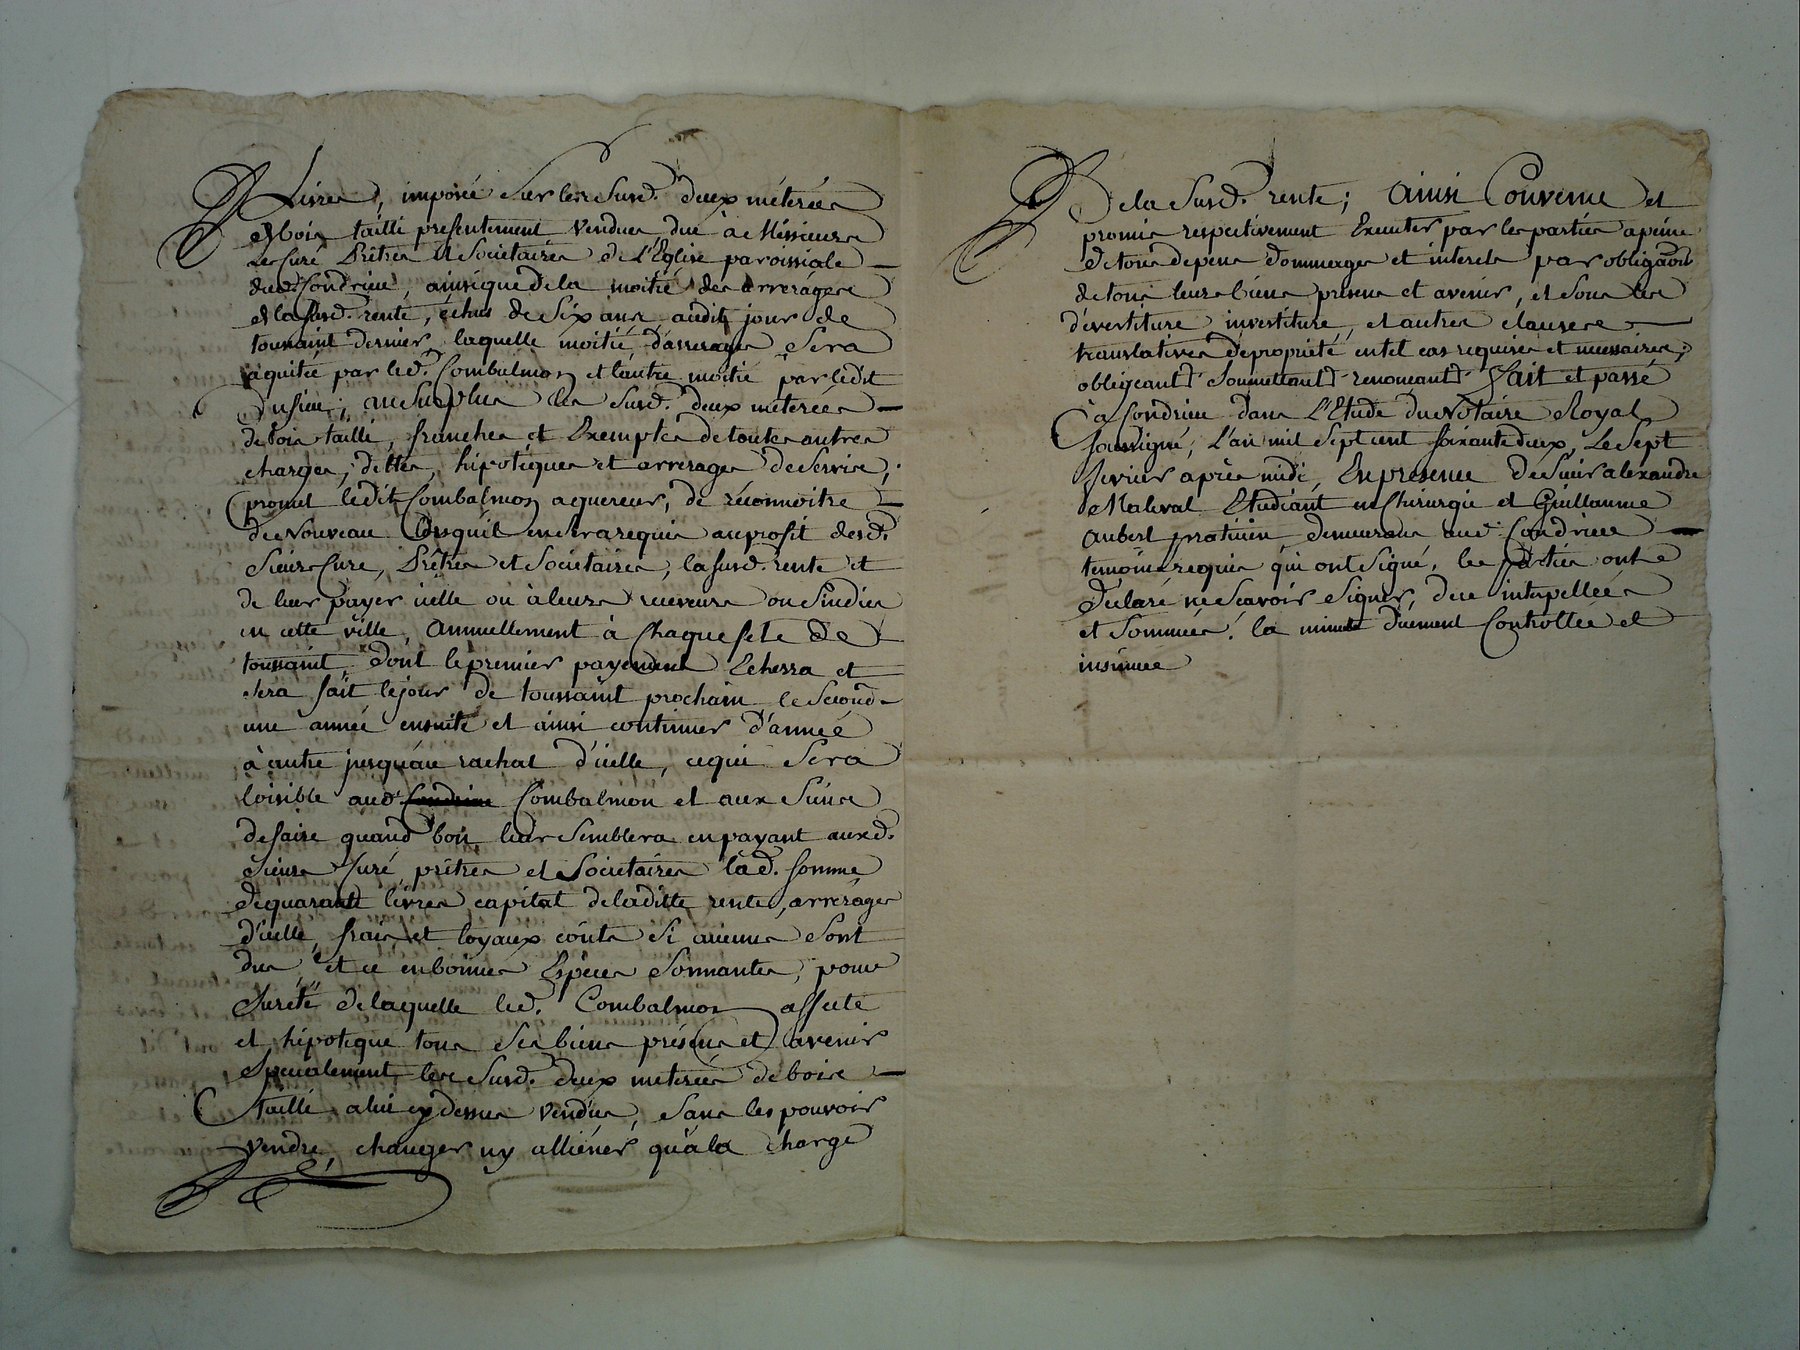 Livres, imposée sur les susd. deux méterées
de bois taillé presentement vendues due à Messieurs
les Curé Prêtres et Societaires de l'Eglise paroissiale
dud. Condrieu, ainsi que de la moitié des arrerages
de la susd. rente, échus de six ans audit jour de
toussaint dernier, laquelle moitié d'arrerages sera
aquitée par led. Combalmon et l'autre moitié par ledit
au surplus les susd. deux méterées
de bois taillé, franches et Exemptes de toutes autres
charges, dettes, hipoteques et arrerages de servis;
promet ledit Combalmon aquereur, de réconnoitre
de Nouveau Lorsquil en sera requis au profit desd.
Sieurs Cure, Prêtres et Societaires, la susd. rente et
de leur payer icelle ou à leurs receveurs ou Sindics
en cette ville, Annuellement à Chaque fete de
toussaint dont le premier payement Echerra et
sera fait le jour de toussaint prochain le second
une année ensuite et ainsi continuer d'année
à autre jusqu'au rachat d'icelle, ce qui sera
loisible aud. Condrieu Combalmon et aux Siens
de faire quand bon leur semblera en payant auxd.
Sieurs Curé, prêtres et Societaires lad. somme
de quarante livres capital de laditte rente, arrérages
d'icelle, frais et loyaux couts si aucuns sont
dus, et ce en bonnes Espèces sonnantes, pour
sureté de laquelle led. Combalmon affecte
et hipoteque tous ses biens présens et avenir
Specialement les susd. deux meterées de bois
taillé a lui cy dessus vendues, sans les pouvoir
vendre, changer ny alliéner qu'à la charge
De la susd. rente; Ainsi Convenu et
promis respectivement Executer par les parties a peine
de tous depens dommages et interets par obligaõn
de tous leurs biens présens et avenir, et sous les
devertiture investiture, et autres clauses
translatives de proprieté en tel cas requises et necessaires,
obligeant soumettant renonceant fait et passé
a Condrieu dans L'Etude du Notaire Royal
soussigné, L'an mil sept cent soixante deux, Le sept
fevrier après midi, En présence de Sieur alexandre
Maleval Etudiant en Chirurgie et Guillaume
aubert praticien, demeurans aud. Condrieu
temoins requis qui ont signé, les parties ont
déclaré ne sçavoir signer, de ce interpellées
et sommées. la minute duement Controllée et
insinuée